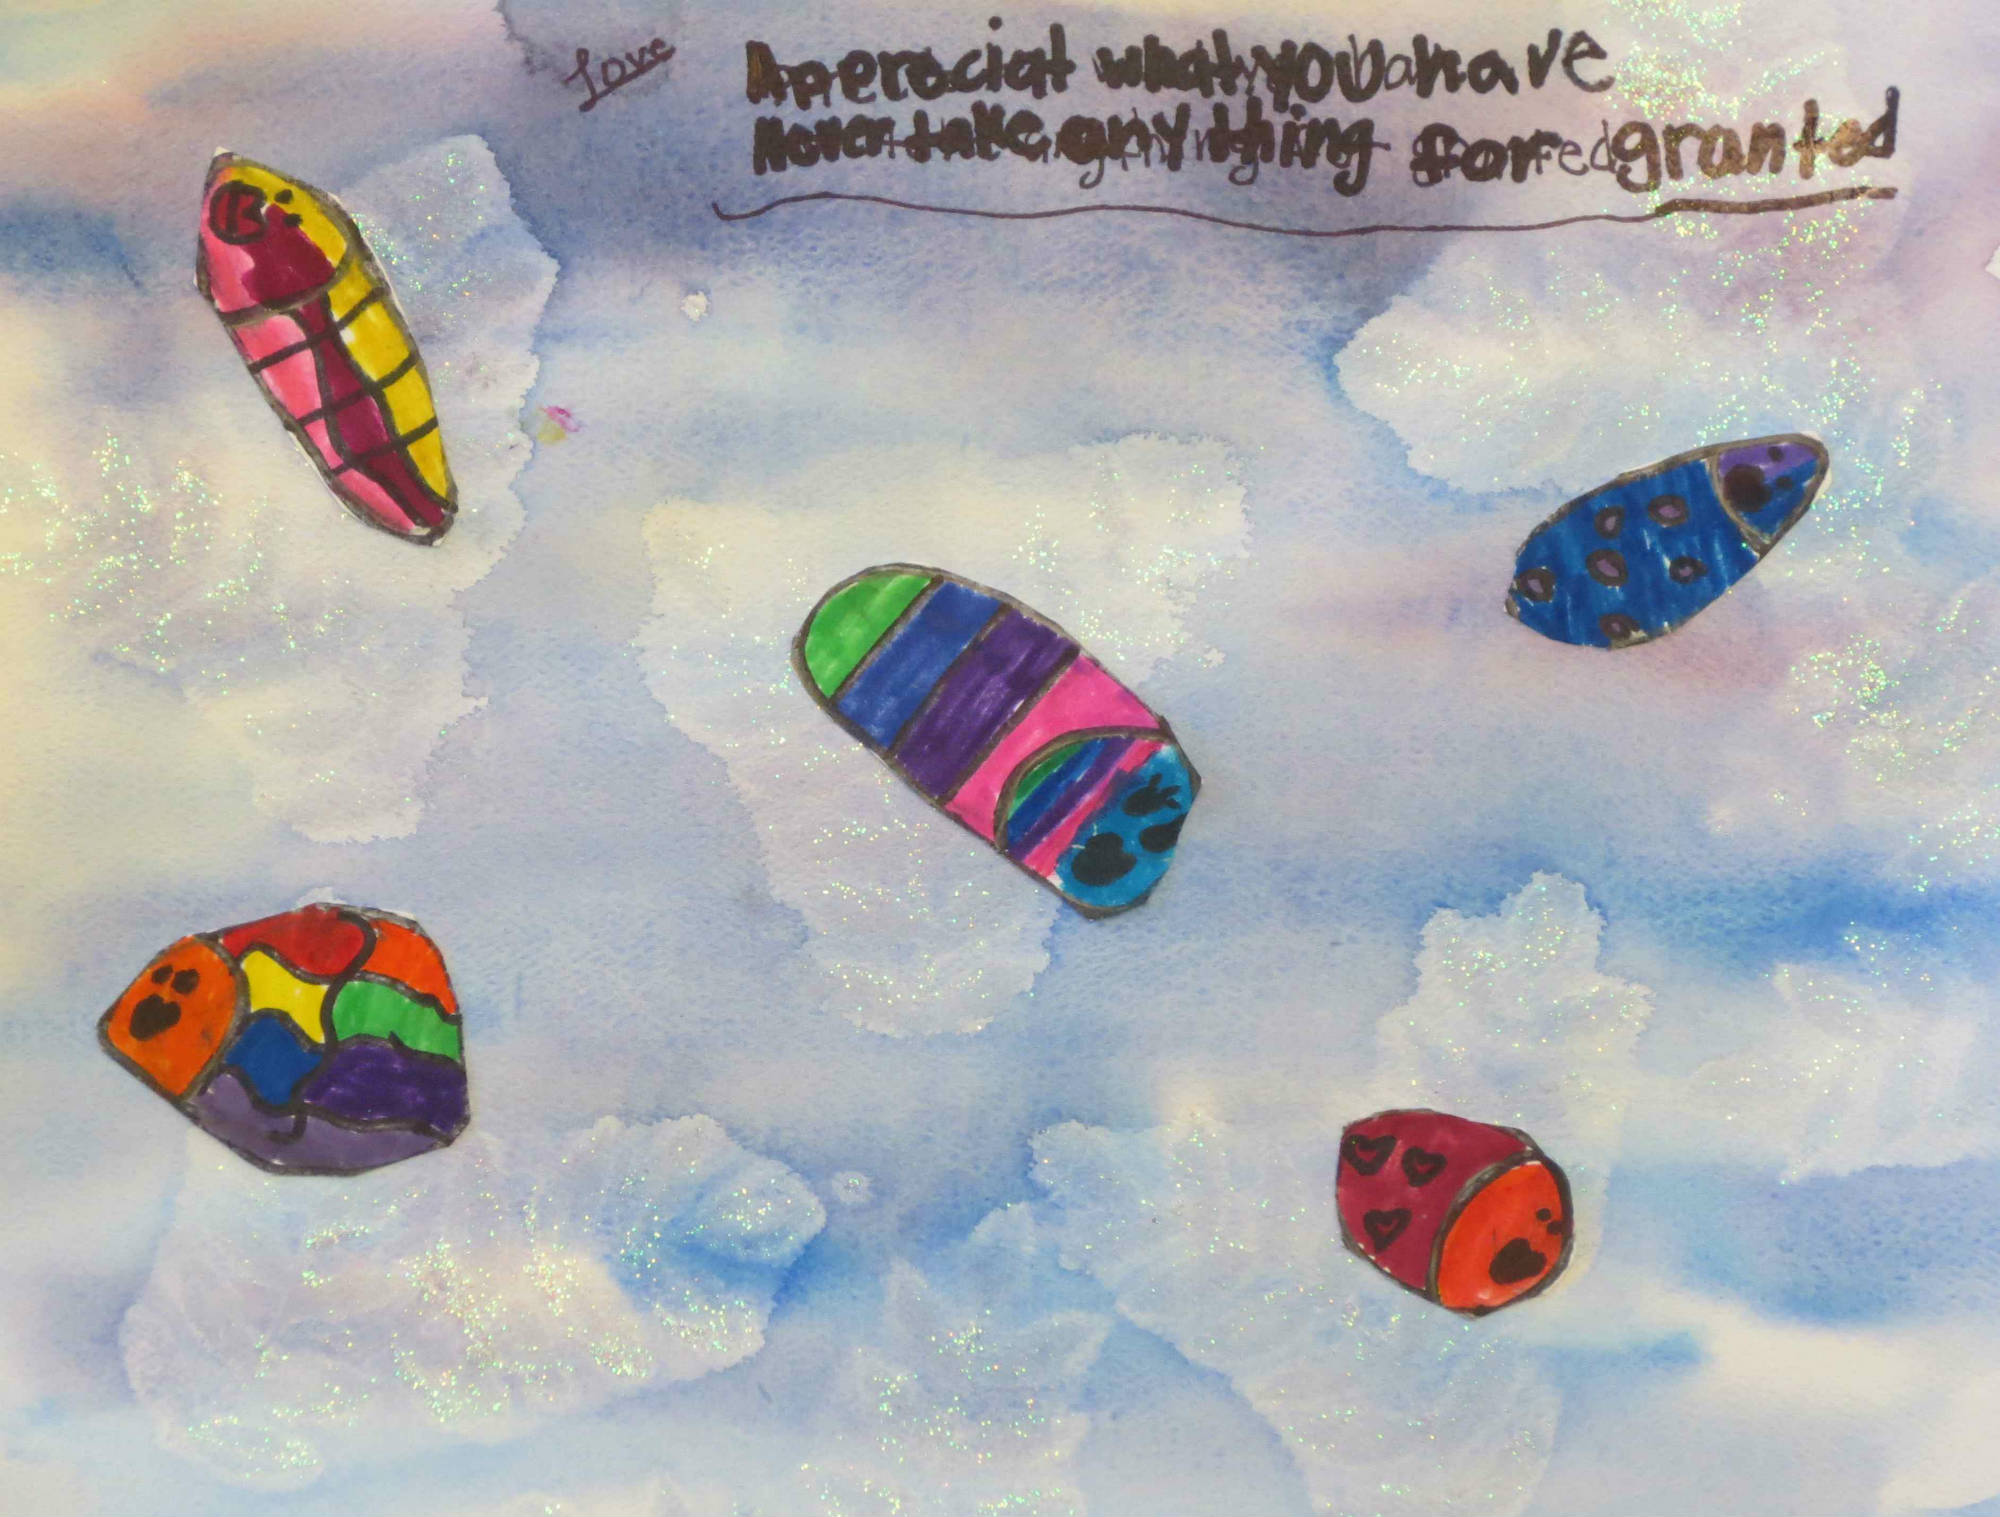 Love
Apperaciat what you have
Never take any thing for granted